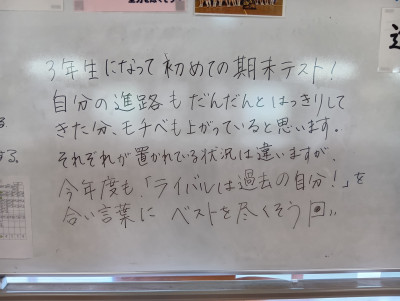 3年生になって初めての期末テスト!
自分の進路もだんだんとはっきりして
きた分、モチベも上がっていると思います。
それぞれが置かれている状況は違いますが、
今年度も、「ライバルは過去の自分!」を
合い言葉に ベストを尽くそう
る。